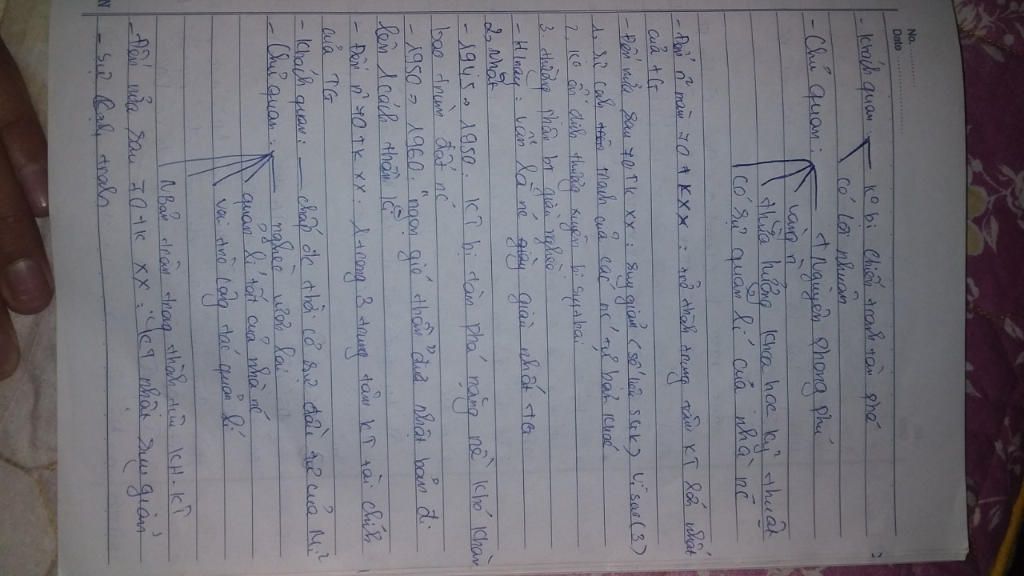 No.
Date
- Khách quan: kº bị chiến tranh tàn phá
có lợi nhuận
- Chủ quan: + Nguyên phong phú
vàng n
thừa hưởng khoa học kỹ thuật
có sự quản lí của nhà nc
- Đến n² năm 70 + KXX: trở thành trung tâm KT lớn nhất
của +G
- Đến nửa sau 70 TK XX: suy giảm (số hoá sgk) vì sao (3)
1. sự cạnh tranh của các nc tư bản khác
2. kº ổn định thường xuyên bị suy thoái
3. giàu nghèo
- Hnay: vẫn là nc giàu nhất +G
2. Nhật
- 1945 → 1950: KT bị tàn phá nặng nề khó khăn
bao trùm đất nc
- 1950 → 1960: ngọn gió thần đưa Nhật
lên 1 cánh thần kì
- Đến n² 70 TK XX: 1 trong 3 trung tâm KT tài chính
của TG
- Khách quan: chớp đc thời cơ sự của Mĩ
- Chủ quan:
quản lí tốt của nhà nc
vai trò công tác quản lí
thành tựu KH-KT
- Đến nửa sau 70 +K XX: KT nhật suy giảm
- sự cạnh tranh